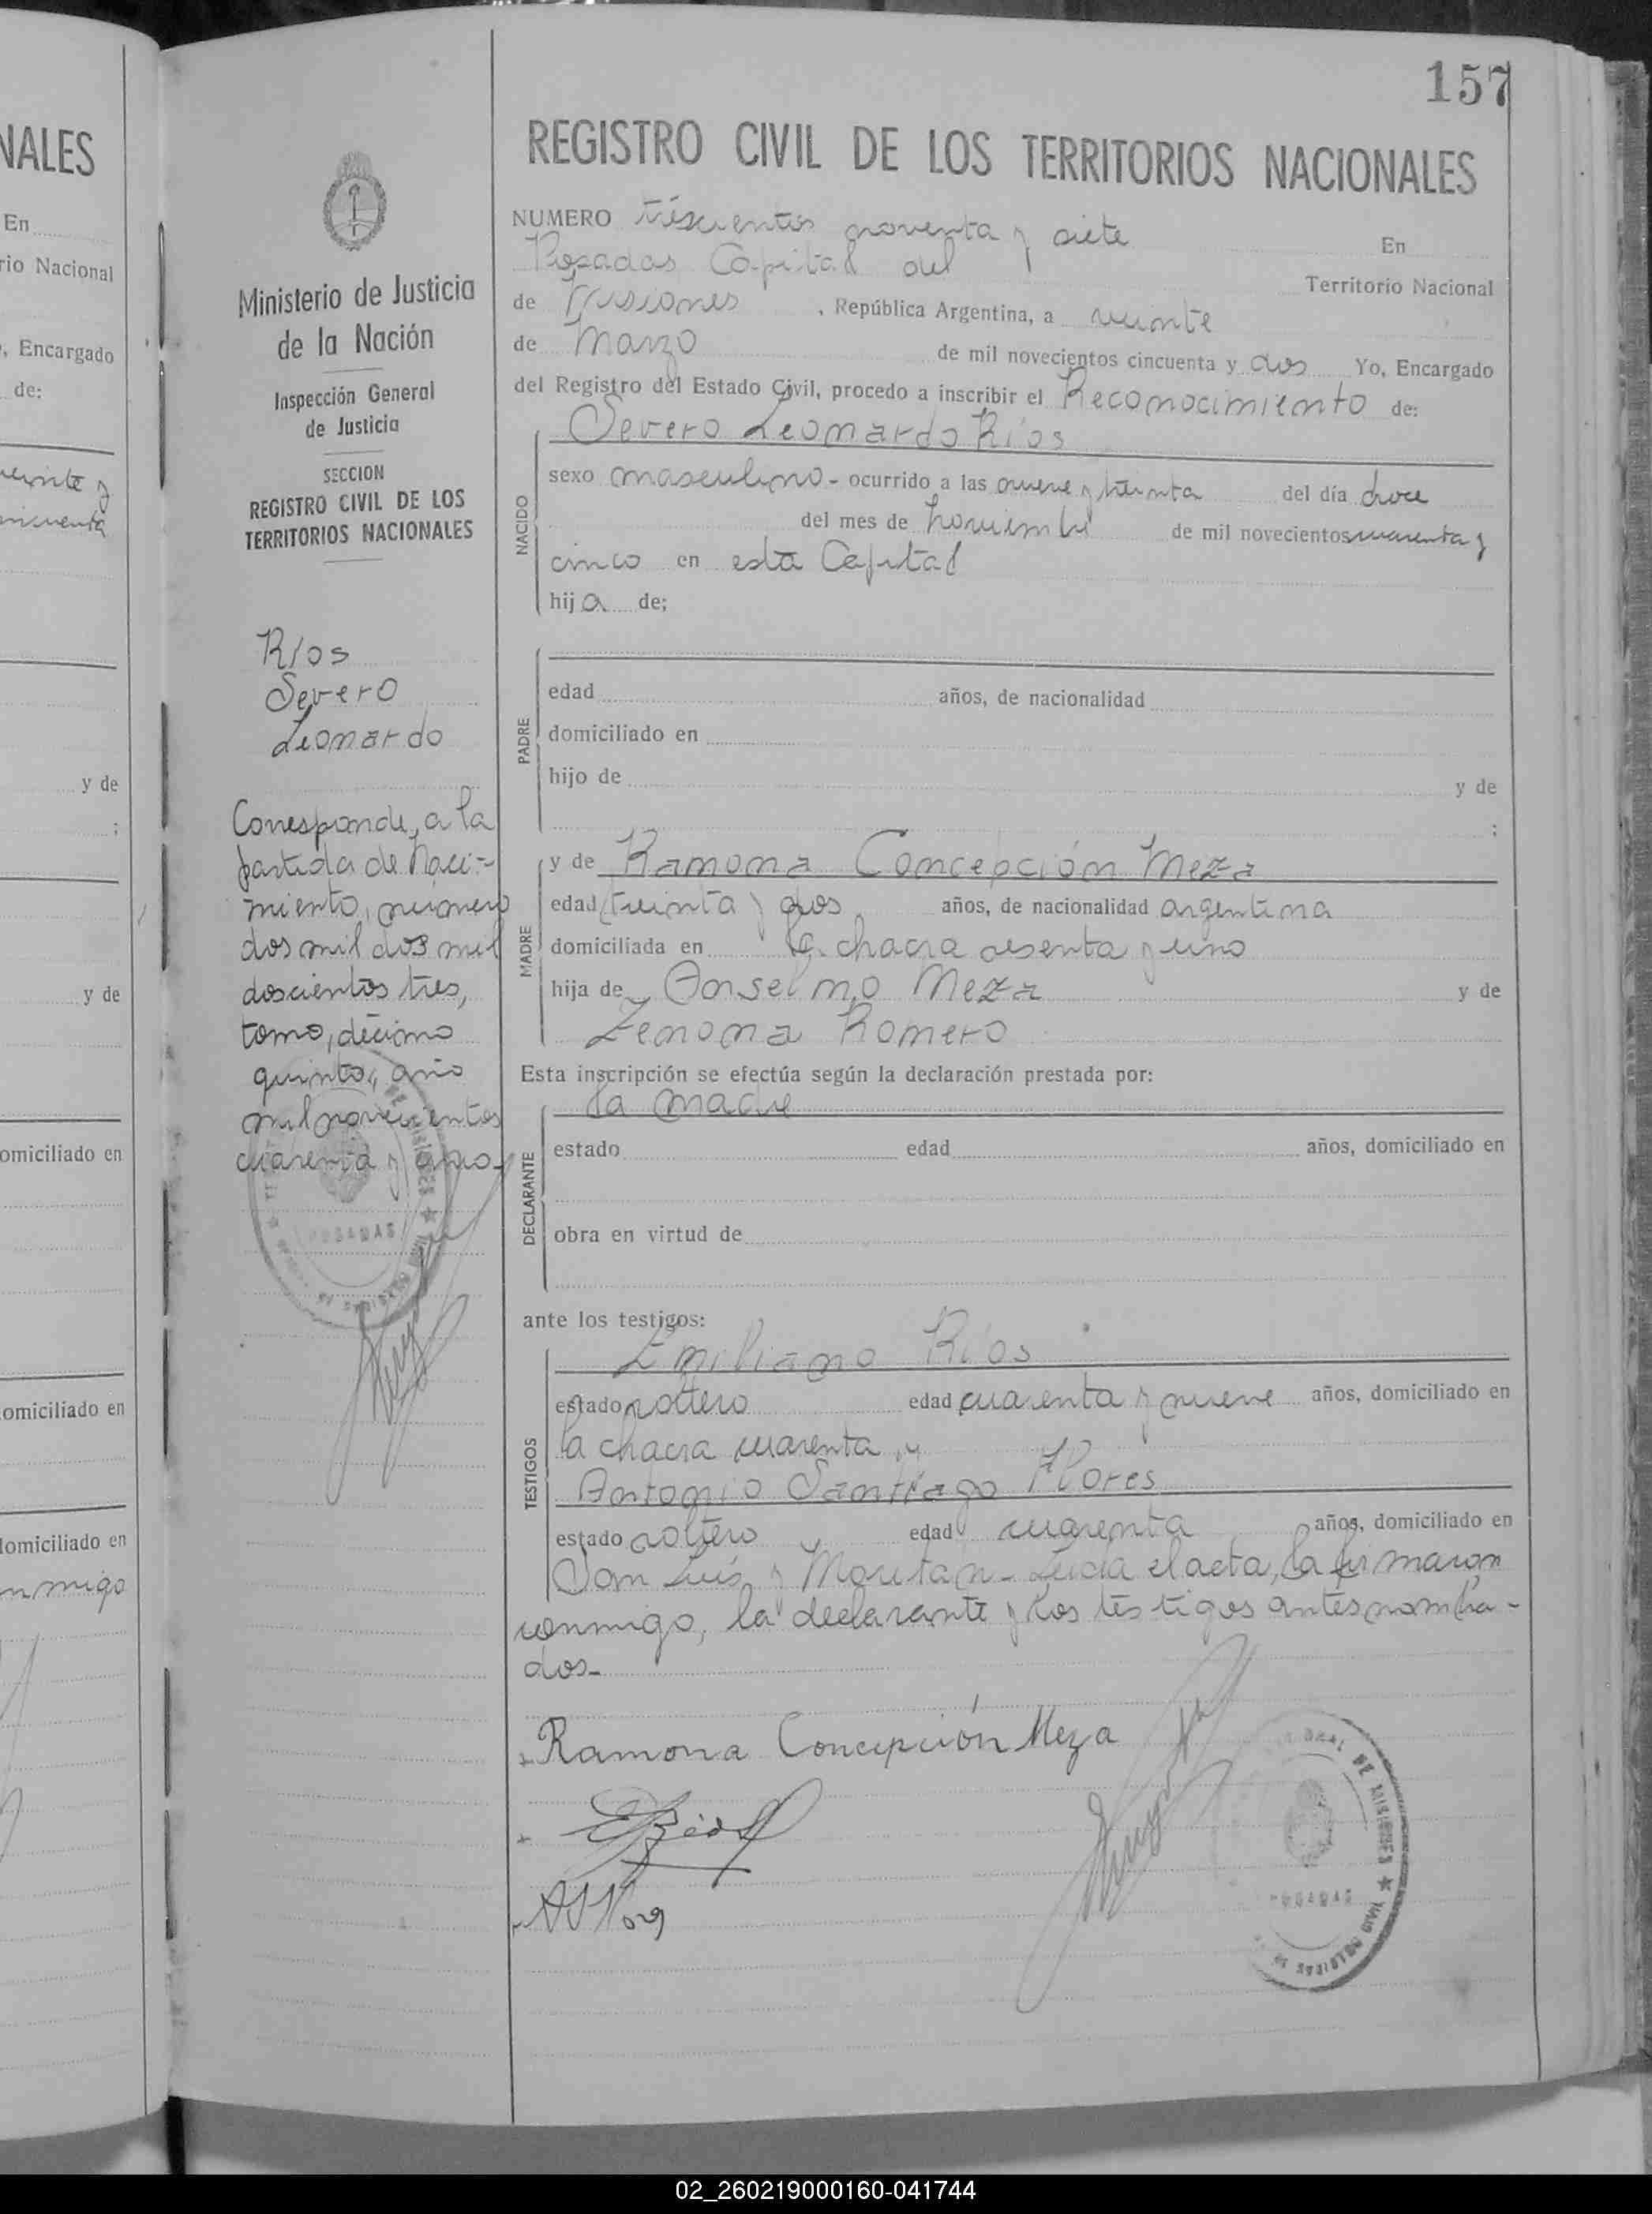 157
NALES
En
rio Nacional
, Encargado
de:
veinte y
cincuenta
y de
;
y de
omiciliado en
omiciliado en
domiciliado en
nmigo
Ministerio de Justicia
de la Nación
Inspección General
de Justicia
SECCION
REGISTRO CIVIL DE LOS
TERRITORIOS NACIONALES
Ríos
Severo
Leonardo
Corresponde, a la
partida de Naci-
miento, número
dos mil dos mil
doscientos tres,
tomo, décimo
quinto, año
mil novecientos
cuarenta y cinco-
POSADAS
REGISTRO CIVIL DE LOS TERRITORIOS NACIONALES
NUMERO trescientos noventa y siete En
Posadas Capital del Territorio Nacional
de Misiones , República Argentina, a veinte
de Marzo de mil novecientos cincuenta y dos Yo, Encargado
del Registro del Estado Civil, procedo a inscribir el Reconocimiento de:
Severo Leonardo Ríos
NACIDO
sexo masculino- ocurrido a las nueve y treinta del día doce
del mes de noviembre de mil novecientos cuarenta y
cinco en esta Capital
hija de;
PADRE
edad años, de nacionalidad
domiciliado en
hijo de y de
;
MADRE
y de Ramona Concepción Meza
edad treinta y dos años, de nacionalidad argentina
domiciliada en la chacra sesenta y uno
hija de Anselmo Meza y de
Zenona Romero
Esta inscripción se efectúa según la declaración prestada por:
DECLARANTE
la madre
estado edad años, domiciliado en
obra en virtud de
ante los testigos:
TESTIGOS
Emiliano Ríos
estado soltero edad cuarenta y nueve años, domiciliado en
la chacra cuarenta y
Antonio Santiago Flores
estado soltero edad cuarenta años, domiciliado en
San Luis y Moritan- Leída el acta, la firmaron
conmigo, la declarante y los testigos antes nombra-
dos-
Ramona Concepción Meza
ERíos
DE MISIONES ★
POSADAS
02_260219000160-041744